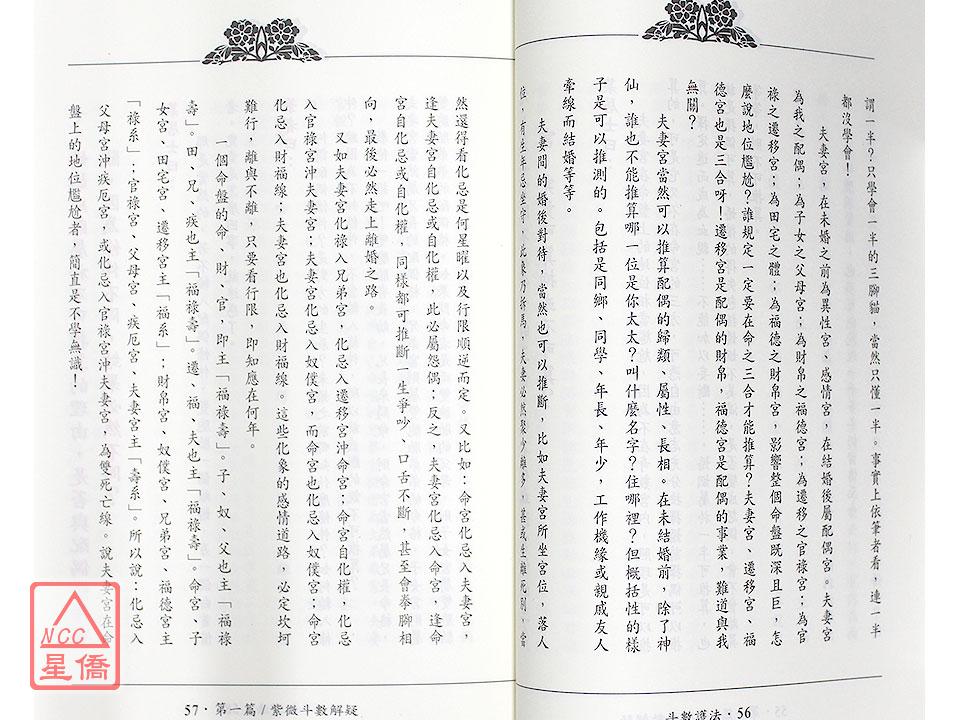 謂一半？只學會一半的三腳貓，當然只懂一半。事實上依筆者看，連一半
都沒學會！
夫妻宮，在未婚之前為異性宮、感情宮，在結婚後屬配偶宮。夫妻宮
為我之配偶；為子女之父母宮；為財帛之福德宮；為遷移之官祿宮；為官
祿之遷移宮；為田宅之體；為福德之財帛宮，影響整個命盤既深且巨，怎
麼說地位尷尬？誰規定一定要在命之三合才能推算？夫妻宮、遷移宮、福
德宮也是三合呀！遷移宮是配偶的財帛，福德宮是配偶的事業，難道與我
無關？
夫妻宮當然可以推算配偶的歸類、屬性、長相。在未結婚前，除了神
仙，誰也不能推算哪一位是你太太？叫什麼名字？住哪裡？但概括性的樣
子是可以推測的。包括是同鄉、同學、年長、年少，工作機緣或親戚友人
牽線而結婚等等。
夫妻間的婚後對待，當然也可以推斷，比如夫妻宮所坐宮位，落人
位，有生年忌坐守，此象乃拆馬，夫妻必然聚少離多，甚或生離死別，當
斗數護法·56
然還得看化忌是何星曜以及行限順逆而定。又比如：命宮化忌入夫妻宮，
逢夫妻宮自化忌或自化權，此必屬怨偶；反之，夫妻宮化忌入命宮，逢命
宮自化忌或自化權，同樣都可推斷一生爭吵、口舌不斷，甚至會拳腳相
向，最後必然走上離婚之路。
又如夫妻宮化祿入兄弟宮，化忌入遷移宮沖命宮；命宮自化權，化忌
入官祿宮沖夫妻宮；夫妻宮化忌入奴僕宮，而命宮也化忌入奴僕宮；命宮
化忌入財福線；夫妻宮也化忌入財福線。這些化象的感情道路，必定坎坷
難行，離與不離，只要看行限，即知應在何年。
一個命盤的命、財、官，即主「福祿壽」。子、奴、父也主「福祿
壽」。田、兄、疾也主「福祿壽」。遷、福、夫也主「福祿壽」。命宮、子
女宮、田宅宮、遷移宮主「福系」；財帛宮、奴僕宮、兄弟宮、福德宮主
「祿系」；官祿宮、父母宮、疾厄宮、夫妻宮主「壽系」。所以說：化忌入
父母宮沖疾厄宮，或化忌入官祿宮沖夫妻宮，為雙死亡線。說夫妻宮在命
盤上的地位尷尬者，簡直是不學無識！
57·第一篇/紫微斗數解疑
NCC
星僑